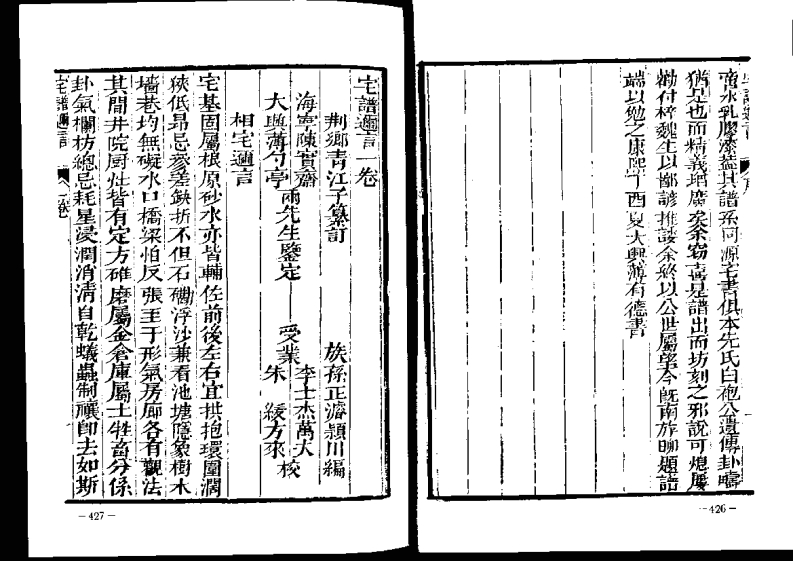 啇水乳膠漆蓋其譜系同源宅書俱本先氏白砲公遺傳卦疇
猶是也而精義增廣矣余竊喜是譜出而坊刻之邪說可熄屢
勸付梓魏生以鄙諺推諉余終以公世屬望今既南旋聊題譜
端以勉之康熙丁酉夏大興薄有德書
-426-
宅譜邇言一卷
荆鄉青江子纂訂 族孫正濬潁川編
海寧陳實齋
大興薄勺亭
兩先生鑒定
受業
李士杰萬大
朱綬方來
校
相宅邇言
宅基固屬根原砂水亦皆輔佐前後左右宜拱抱環圍濶
狹低昂忌參差缺折不但石磡浮沙兼看池塘隱象樹木
墻巷均無礙水口橋梁怕反張至于形氣房廊各有觀法
其間井院厨灶皆有定方碓磨屬金倉庫屬土牲畜分係
卦氣欄枋總忌耗星浸潤消淸自乾蟻蟲制禳卽去如斯
宅譜邇言 一卷
-427-